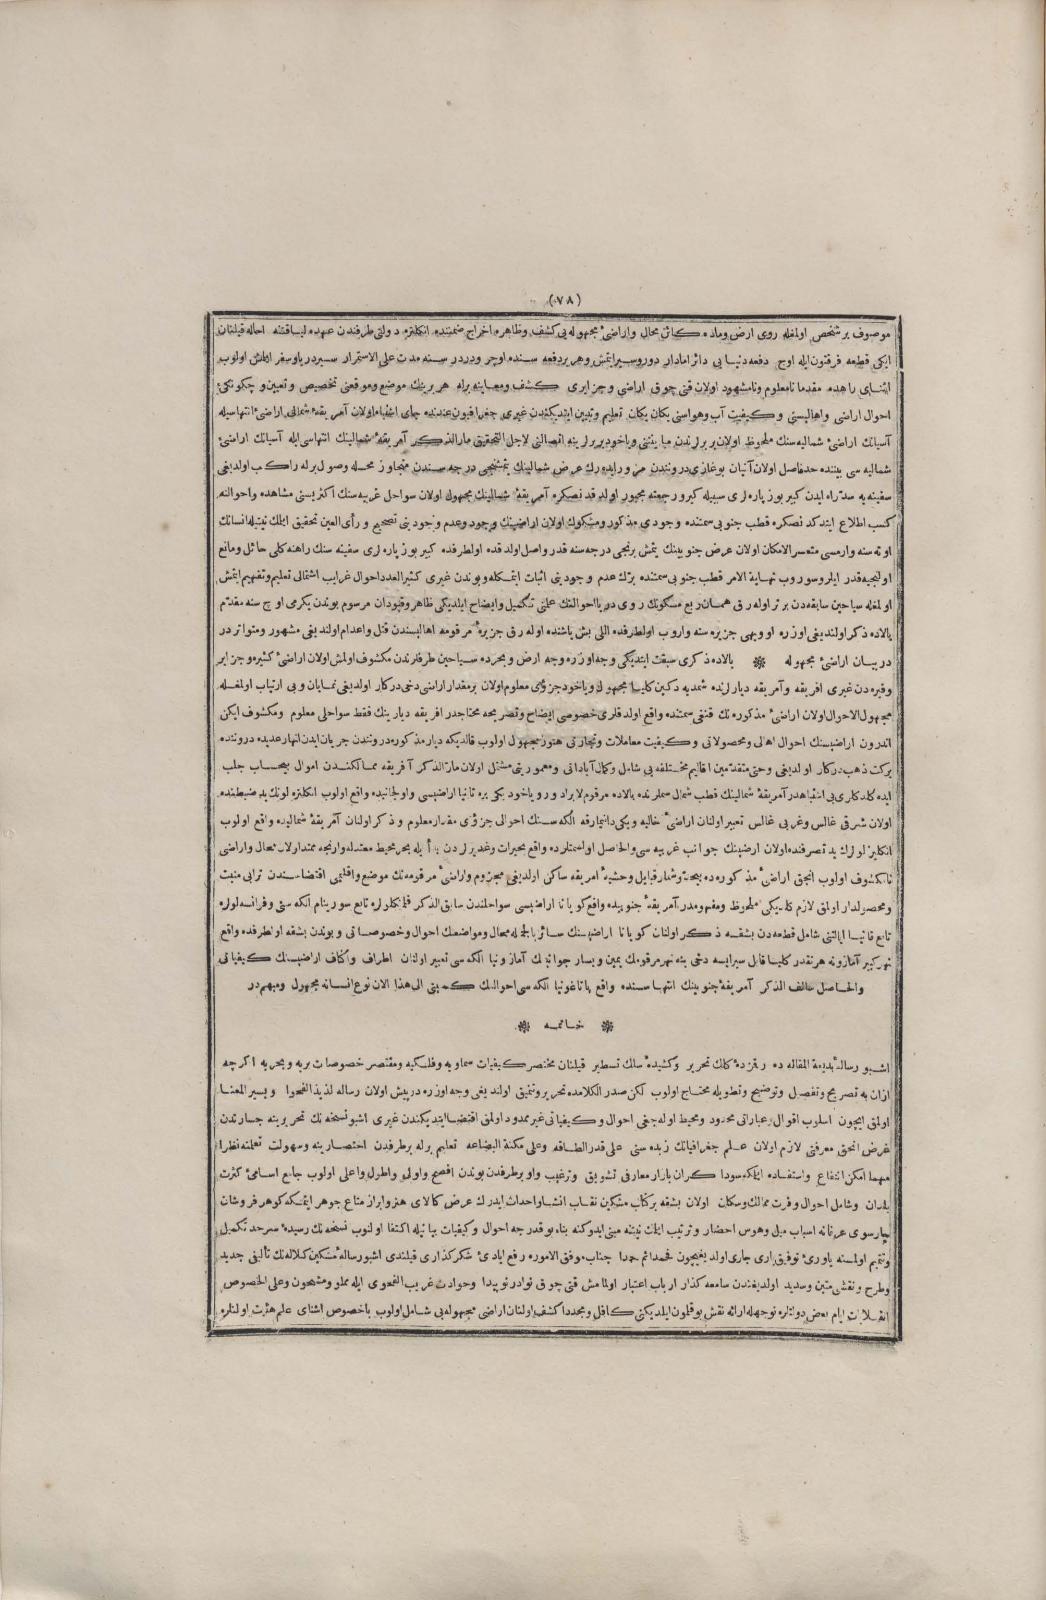 (٧٨)
موصوف بر شخص اولمغله روی ارض وماده كائن محال واراضئ مجهوله یی كشف وظاهره اخراج ضمننده انكلتره دولتی طرفندن عهده لیاقتنه احاله قیلنان
ایكی قطعه فرقتون ایله اوچ دفعه دنیا یی دائرا مادار دور وسیر ایتمش وهر بر دفعه سنده اوچر ودردر سنه مدت علی الاستمرار سیر دریا وسفر ایلمش اولوب
اثنای راهده مقدما نامعلوم ونامشهود اولان قتی چوق اراضی وجزایری كشف ومعاینه برله هر برینك موضع وموقعنی تخصیص وتعیین وچكونكئ
احوال اراضی واهالیسنی وكیفیت آب وهواسنی یكان یكان تعلیم وتبیین ایتدیكندن غیری جغرافیون عندنده جای اشتباه اولان آمریقهٔ شمالی اراضئ انتهاسیله
آسیانك اراضئ شمالیه سنك ملحوظ اولان بربرلرندن مباینتی ویاخود بربرلرینه اتصالنی لاجل التحقیق مار الذكر آمریقهٔ شمالینك انتهاسی ایله آسیانك اراضئ
شمالیه سی بیننده حد فاصل اولان آنیان بوغازی دروندن مرور ایده رك عرض شمالینك یتمشنجی درجه سندن متجاوز محله وصول برله راكب اولدیغی
سفینه یه سد راه ایدن كبیر بوز پاره لری سببیله كیرو رجعته مجبور اولدقدنصكره آمریقهٔ شمالینك مجهول اولان سواحل غربیه سنك اكثریسنی مشاهده واحوالنه
كسب اطلاع ایتدكدنصكره قطب جنوبی سمتنده وجودی مذكور ومشكوك اولان اراضینك وجود وعدم وجودینی تصحیح ورأی العین تحقیق ایلمك نیتیله انسانك
اوته سنه وارمسی متعسر الامكان اولان عرض جنوبینك یتمش برنجی درجه سنه قدر واصل اولدقده اولطرفده كبیر بوز پاره لری سفینه سنك راهنه كلی حائل ومانع
اولنجیه قدر ایلرو سوروب نهایة الامر قطب جنوبی سمتنده برك عدم وجودینی اثبات ایتمكله وبوندن غیری كثیر العدد احوال غرایب اشتمالی تعلیم وتفهیم ایتمش
اولمغله سیاحین سابقه دن برتر اوله رق همان ربع مسكونك روی دریا احوالنك علمنی تكمیل وایضاح ایلدیكی ظاهر وقپودان مرسوم بوندن یكرمی اوچ سنه مقدم
بالاده ذكر اولندیغی اوزره اوویهی جزیره سنه واروب اولطرفده اللی بش یاشنده اوله رق جزیرهٔ مرقومه اهالیسندن قتل واعدام اولندیغی مشهور ومتواتر در
دربیان اراضئ مجهوله ❋ بالاده ذكری سبقت ایتدیكی وجه اوزره وجه ارض وبحرده سیاحین طرفلرندن مكشوف اولمش اولان اراضئ كثیره وجزایر
وفیره دن غیری افریقه وآمریقه دیارلرنده شمدیه دكین كلیا مجهول ویاخود جزؤی معلوم اولان بر مقدار اراضی دخی دركار اولدیغی نمایان وبی ارتیاب اولمغله
مجهول الاحوال اولان اراضئ مذكوره نك قنغی سمتنده واقع اولدقلری خصوصی ایضاح وتصریحه محتاجدر افریقه دیارینك فقط سواحلی معلوم ومكشوف ایكن
اندرون اراضیسنك احوال اهالی ومحصولاتی وكیفیت معاملات وتجارتی هنوز مجهول اولوب قالدیكه دیار مذكوره دروننده جریان ایدن انهار عدیده دروننده
بركت ذهب دركار اولدیغی وحتی متقدمین اقالیم مختلفه یی شامل وكمال آبادانی ومعموریتی مشتمل اولان مار الذكر آفریقه ممالكندن اموال بیحساب جلب
ایده كلدكلری بی اشتباهدر آمریقهٔ شمالینك قطب شمال سمتلرنده بالاده مرقوم لابرادور ویاخود یكی بره تانیا اراضیسی واول جانبده واقع اولوب انكلتره لونك ید ضبطنده
اولان شرقی غالس وغربی غالس تعبیر اولنان اراضئ خالیه ویكی دانیمارقه الكه سنك احوالی جزؤی مقدار معلوم وذكر اولنان آمریقهٔ شمالیده واقع اولوب
انكلیزلولرك ید تصرفنده اولان ارضینك جوانب غربیه سی والحاصل اول سمتلرده واقع بحیرات وغدیرلردن بدأ ایله بحر محیط معتدله وارنجه ممتد اولان محال واراضی
نامكشوف اولوب انجق اراضئ مذكوره ده بیحد وشمار قبایل وحشیهٔ امریقه ساكن اولدیغی مجزوم واراضئ مرقومه نك موضع واقلیمی اقتضاسندن ترابی منبت
ومحصولدار اولمق لازم كلدیكی ملحوظ ومفهومدر آمریقهٔ جنوبیده واقع كویانا اراضیسی سواحلندن سابق الذكر فلمنكلولره تابع سورینام الكه سنی وفرانسه لولره
تابع قانیا ایالتنی شامل قطعه دن بشقه ذكر اولنان كویانا اراضیسنك سائر بالجمله محال ومواضعنك احوال وخصوصاتی وبوندن بشقه اولطرفده واقع
نهر كبیر آمازونه هر نقدر كلیا قابل سیرایسه دخی ینه نهر مرقومك یمین ویسار جوانبك آمازونیا الكه سی تعبیر اولنان اطراف واكناف اراضیسنك كیفیاتی
والحاصل سالف الذكر آمریقهٔ جنوبینك انتهاسنده واقع پاتاغونیا الكه سی احوالنك كمیتی الی هذا الان نوع انسانه مجهول ومبهم در
❋ خاتمه ❋
اشبو رسالهٔ بدیعة المقاله ده رقمزدهٔ كلك تحریر وكشیدهٔ سلك تسطیر قیلنان مختصر كیفیات سماویه وفلكیه ومقتصر خصوصات بریه وبحریه اكرچه
ازان به تصریح وتفصیل وتوضیح وتطویله محتاج اولوب لكن صدر الكلامده تحریر وتنمیق اولندیغی وجه اوزره درپیش اولان رساله لذیذ الفحوا ویسیر المعنا
اولمق ایچون اسلوب اقوال وعباراتی محدود ومحیط اوله جغی احوال وكیفیاتی غیر ممدود اولمق اقتضا ایتدیكندن غیری اشبو نسخه نك تحریرینه جسارتدن
غرض انجق معرفتی لازم اولان علم جغرافیانك زبده سنی علی قدر الطاقه وعلی مكنة البضاعه تعلیم برله برطرفدن اختصارینه وسهولت تعلمنه نظرا
مهما امكن انتفاع واستفاده ایلمكه سوداكران بازار معارفی تشویق وترغیب واو برطرفدن بوندن افصح واولی واطول واعلی اولوب جامع اسامئ كثرت
بلدان وشامل احوال وفرت ممالك وسكان اولان بشقه بر كتاب مشكین نقاب انشا واحداث ایدرك عرض كالای هنر وابراز متاع جوهر ایتمكه كوهر فروشان
چارسوی عرفانه اسباب میل وهوس احضار وترتیب ایلمك نیتنه مبنی ایدوكنه بناء بو قدرجه احوال وكیفیات بیانیله اكتفا اولنوب نسخه نك رسیدهٔ سرحد تكمیل
وتتمیم اولمسنه یاورئ توفیق باری جاری اولدیغیچون فحمدا ثم حمدا جناب موفق الاموره رفع ایادئ شكركذاری قیلندی اشبو رسالهٔ مشكین كلاله نك تألیفی جدید
وطرح ونقشی متین وسدید اولدیغندن سامعه كذار ارباب اعتبار اولمامش قتی چوق نوادر نوپیدا وحوادث غریب الفحوی ایله مملو ومشحون وعلی الخصوص
انقلابات ایام بعض دولتلره نوجهله ارائه نقش بوقلمون ایلدیكنی كافل ومجددا كشف اولنان اراضی مجهوله یی شامل اولوب باخصوص اشنای علم هیئت اولنلره